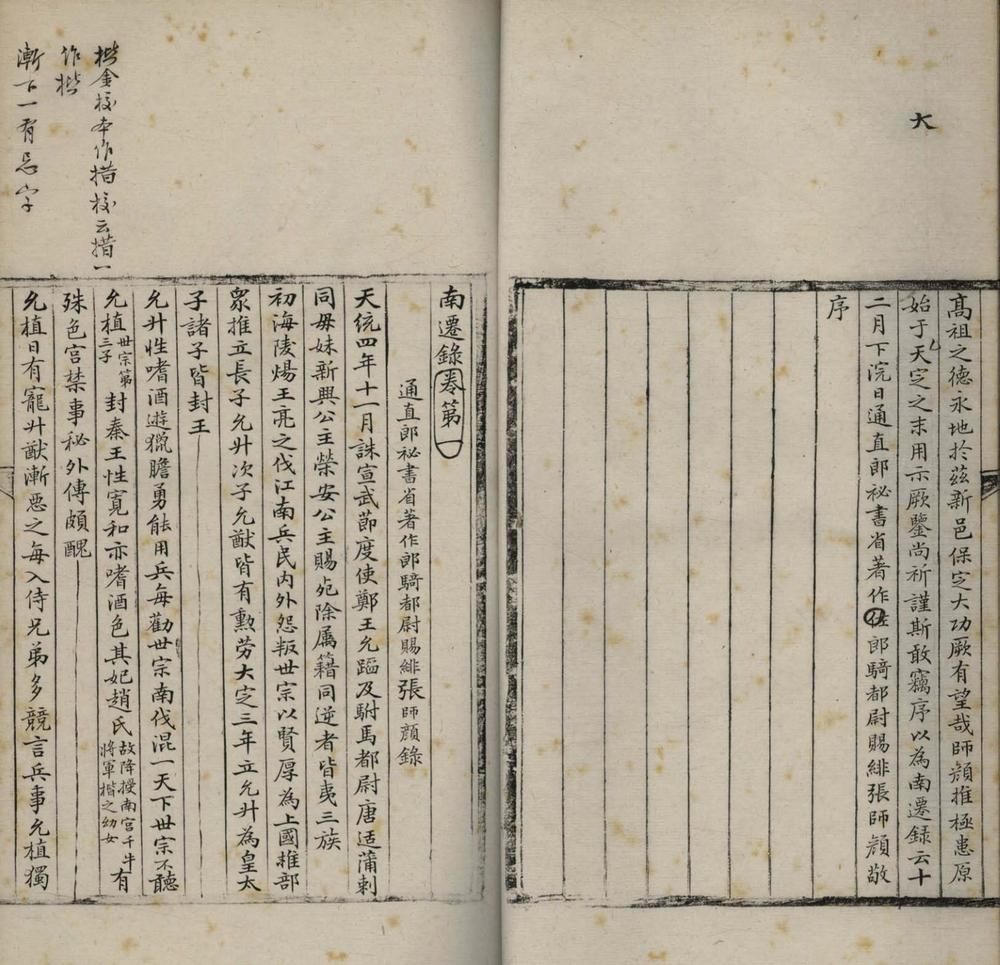 大
高祖之德永地於茲新邑保定大功厥有望哉師顏推極患原
始于天定之末用示厥鑒尚祈謹斯敢竊序以為南遷録云十
二月下浣日通直郎秘書省著作佐郎騎都尉賜緋張師顏敬
序
楷金校本作措校云措一
作楷
漸下一有忌字
南遷錄卷第一
通直郎秘書省著作郎騎都尉賜緋張師顏錄
天統四年十一月誅宣武節度使鄭王允蹈及駙馬都尉唐适蒲剌
同毋妹新興公主榮安公主賜死除属籍同逆者皆夷三族
初海陵煬王亮之伐江南兵民内外怨叛世宗以賢厚為上國推部
衆推立長子允升次子允猷皆有勳劳大定三年立允升為皇太
子諸子皆封王
允升性嗜酒遊獵膽勇能用兵毎勸世宗南伐混一天下世宗不聽
允植世宗第三子封秦王性寛和亦嗜酒色其妃趙氏故降授南宫千牛將軍楷之幼女有
殊色宫禁事秘外傳頗醜
允植日有寵升猷漸惡之每入侍兄弟多競言兵事允植獨